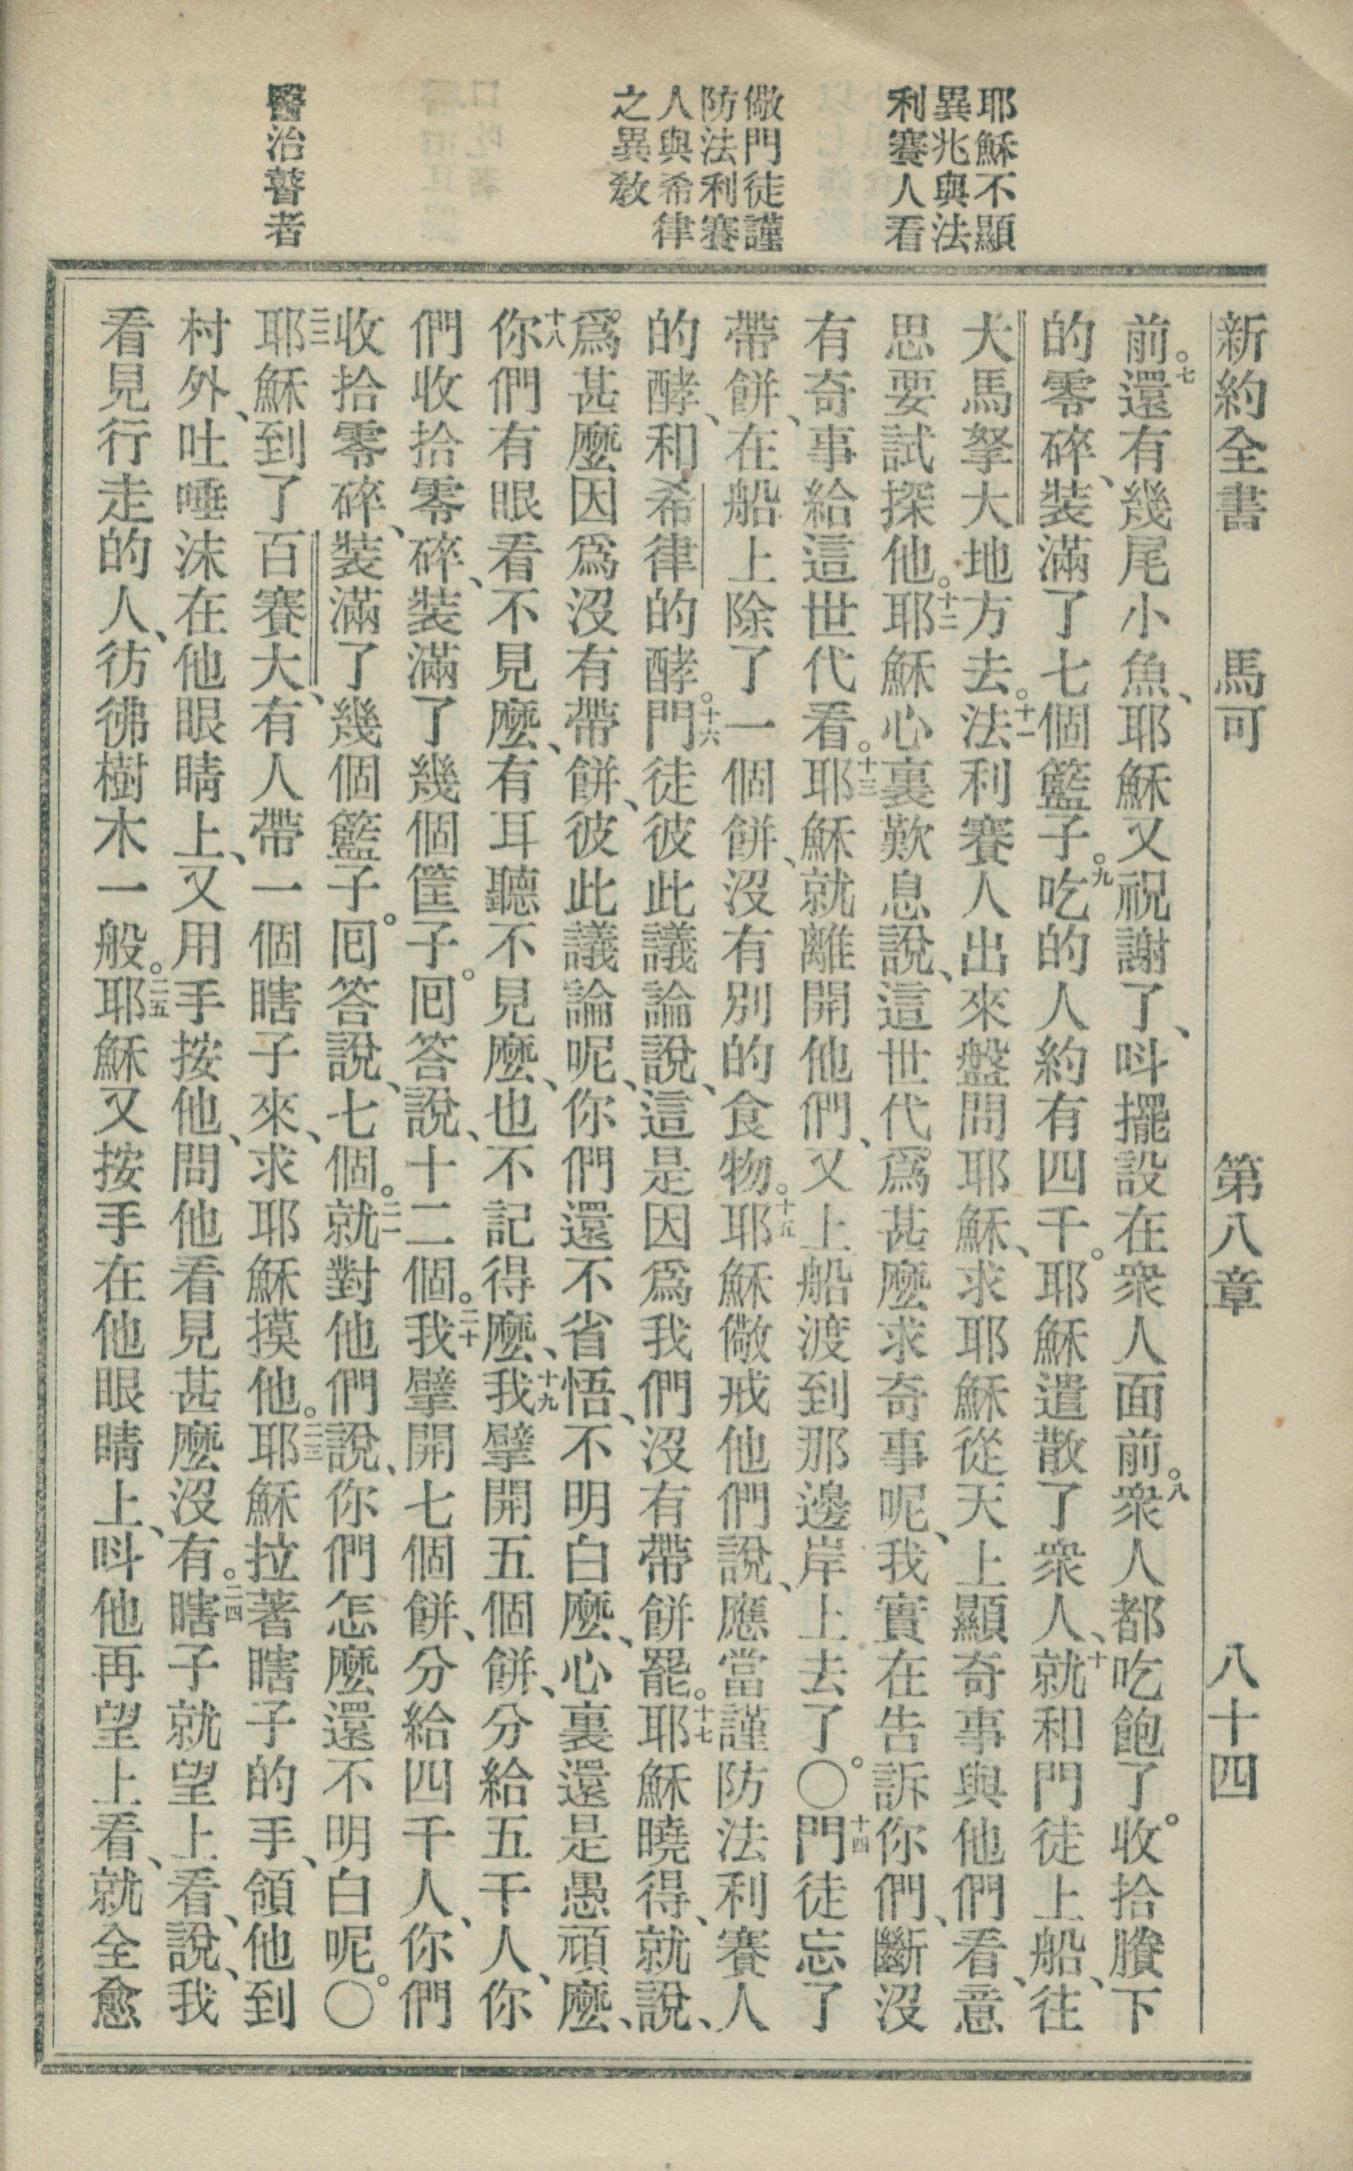 新約全書　馬可　第八章　八十四
耶穌不顯
異兆與法
利賽人看
儆門徒謹
防法利賽
人與希律
之異敎
醫治瞽者
前。七還有幾尾小魚、耶穌又祝謝了、呌擺設在衆人面前。八衆人都吃飽了。收拾賸下
的零碎、裝滿了七個籃子。九吃的人約有四千。耶穌遣散了衆人、十就和門徒上船、往
大馬拏大地方去。十一法利賽人出來盤問耶穌、求耶穌從天上顯奇事與他們看、意
思要試探他。十二耶穌心裏歎息說、這世代爲甚麼求奇事呢、我實在告訴你們、斷沒
有奇事給這世代看。十三耶穌就離開他們、又上船渡到那邊岸上去了。〇十四門徒忘了
帶餅、在船上除了一個餅、沒有別的食物。十五耶穌儆戒他們說、應當謹防法利賽人
的酵、和希律的酵。十六門徒彼此議論說、這是因爲我們沒有帶餅罷。十七耶穌曉得、就說、
爲甚麼因爲沒有帶餅、彼此議論呢、你們還不省悟、不明白麼、心裏還是愚頑麼、
十八你們有眼看不見麼、有耳聽不見麼、也不記得麼、十九我擘開五個餅、分給五千人、你
們收拾零碎、裝滿了幾個筐子。囘答說、十二個。二十我擘開七個餅、分給四千人、你們
收拾零碎、裝滿了幾個籃子。囘答說、七個。二一就對他們說、你們怎麼還不明白呢。〇
二二耶穌到了百賽大、有人帶一個瞎子來、求耶穌摸他。二三耶穌拉著瞎子的手、領他到
村外、吐唾沫在他眼睛上、又用手按他、問他看見甚麼沒有。二四瞎子就望上看、說、我
看見行走的人、彷彿樹木一般。二五耶穌又按手在他眼睛上、呌他再望上看、就全愈